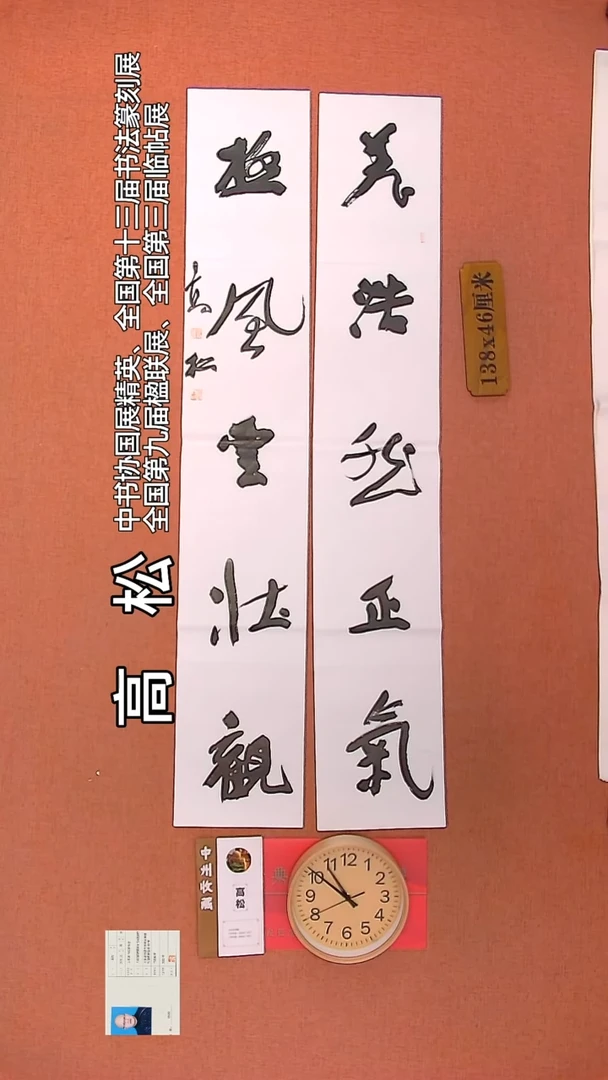 中书协国展精英、全国第十三届书法篆刻展
全国第九届楹联展、全国第三届临帖展
高 松
養浩然正氣
極風雲壯觀
高松
138x46厘米
高松
12
11
10
9
8
7
6
5
4
3
2
1